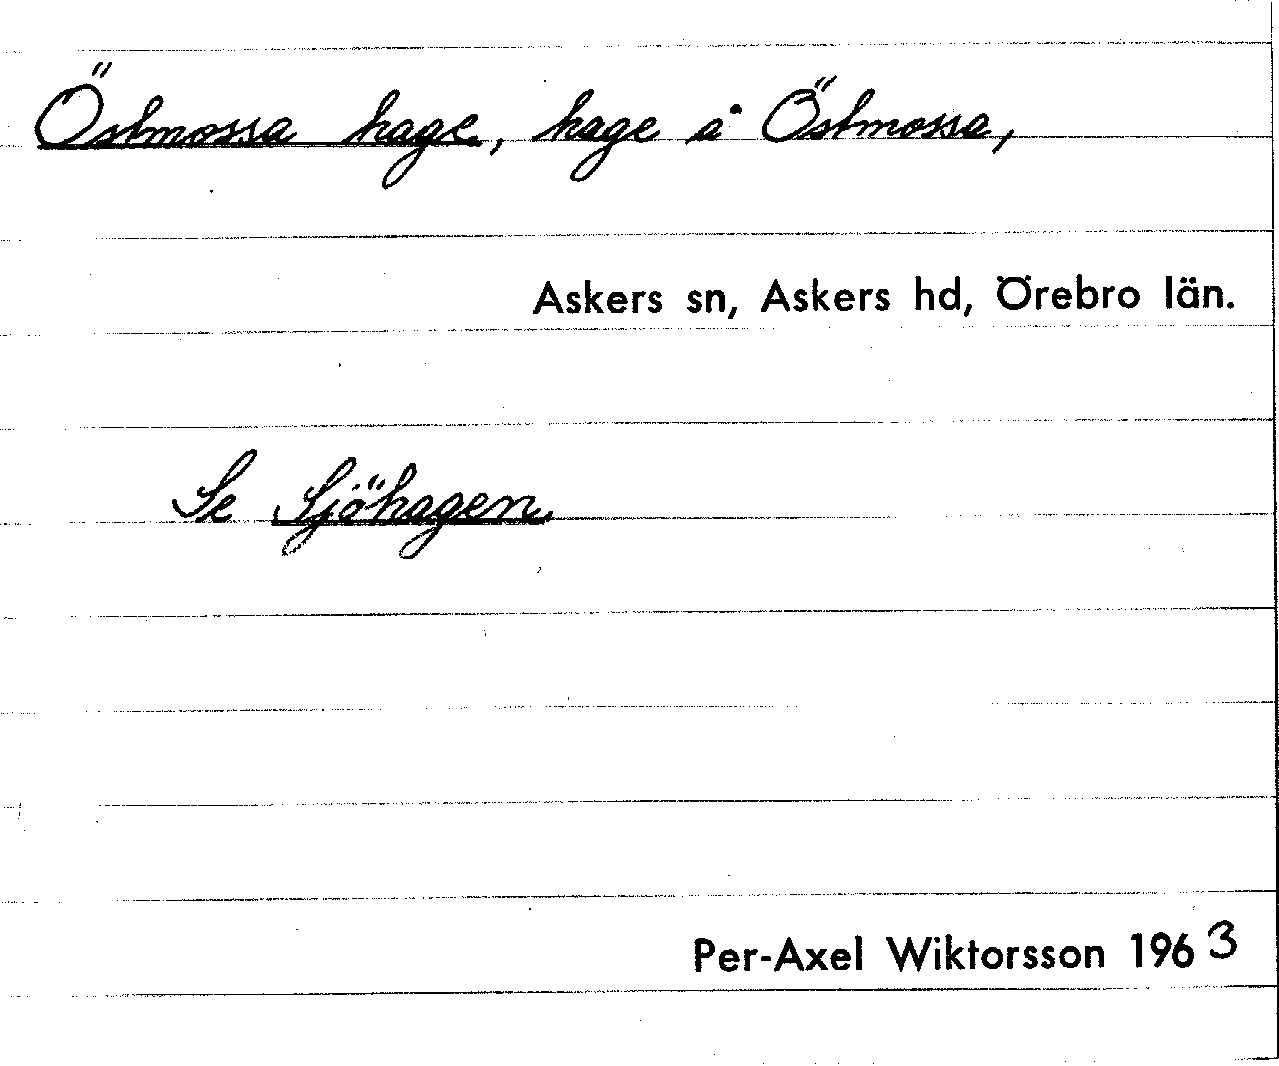 Östmossa hage, hage å Östmossa,
Askers sn, Askers hd, Örebro län.
Se Sjöhagen.
Per-Axel Wiktorsson 1963